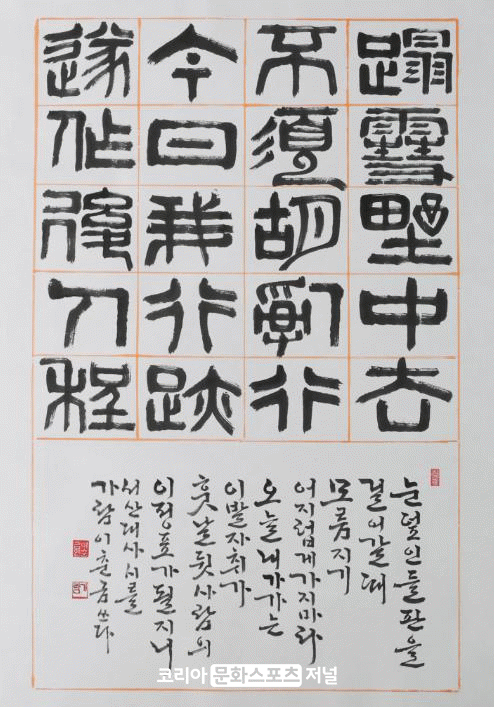 蹋䨮野中去
不須胡亂行
今日我行跡
遂作後人程
눈덮인들판을
걸어갈때
모름지기
어지럽게가지마라
오늘내가가는
이발자취가
훗날뒷사람의
이정표가될지니
서산대사시를
가람이춘금쓰다
코리아 문화스포츠 저널